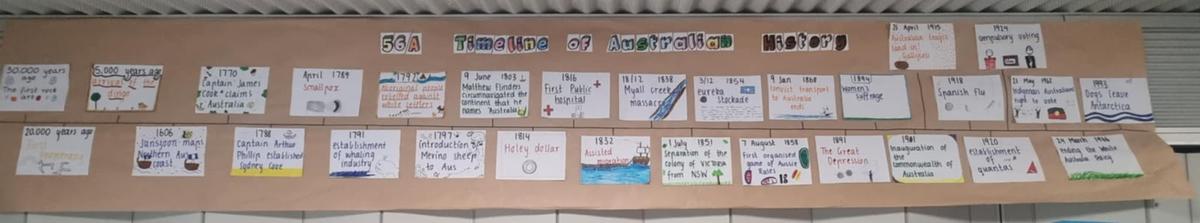 56A Timeline of Australian History
25 April 1915
Australian troops
land in
Gallipoli
1924
compulsory voting
30,000 years
ago
The first rock
art
5,000 years ago
arrival of the
dingo
1770
Captain James
Cook claims
Australia
April 1789
Smallpox
1792
Aboriginal people
rebelled against
white settlers
9 June 1803
Matthew Flinders
circumnavigated the
continent that he
names 'Australia'
1816
First Public
hospital
18/12 1838
Myall creek
massacre
3/12 1854
eureka
Stockade
9 Jan 1868
convict transport
to Australia
ends
1894
Women's
Suffrage
1918
Spanish Flu
21 May 1962
Indigenous Australians
right to vote
1993
Dogs leave
Antarctica
20,000 years ago
1606
Janszoon maps
Northern Aus
coast
1788
Captain Arthur
Phillip established
Sydney Cove
1791
establishment
of whaling
industry
1797
introduction of
Merino sheep
to Aus
1814
Holey dollar
1832
Assisted
migration
1 July 1851
Separation of the
colony of Victoria
from NSW
7 August 1858
First organised
game of Aussie
Rules
1891
The Great
Depression
1901
Inauguration of
the
commonwealth of
Australia
1920
establishment
of
quantas
24 March 1966
ending the White
Australia Policy